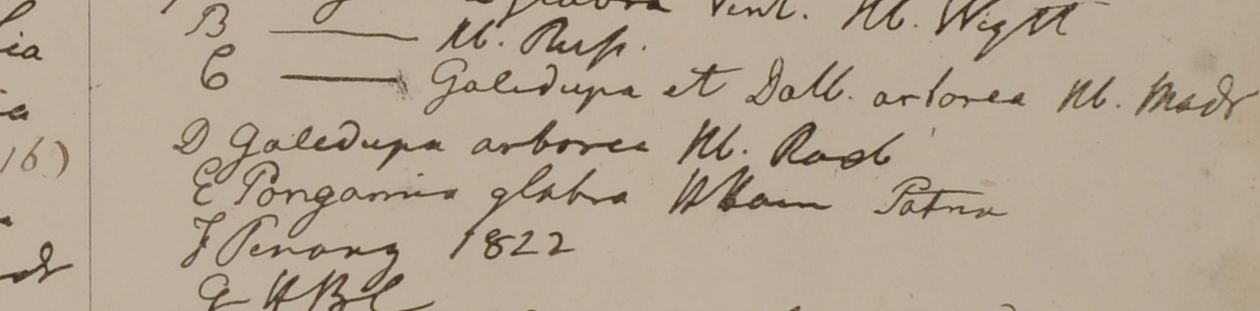 glabra Vent. Hb. Wight
B —— Hb. Russ.
C —— Galedupa et Dalb. arborea Hb. Madr
D Galedupa arborea Hb. Roxb
E Pongamia glabra HHam Patna
F Penang 1822
G HBC